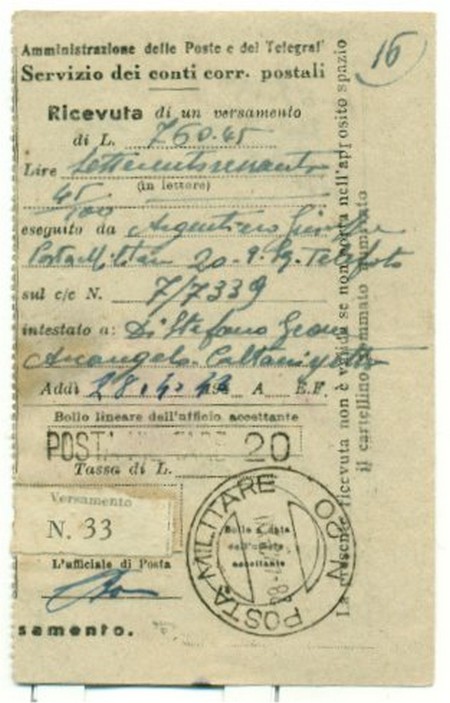 16
Amministrazione delle Poste e del Telegraf'
Servizio dei conti corr. postali
Ricevuta di un versamento
di L. 760.45
Lire settecentosessanta
(in lettere)
45/100
eseguito da Argentino
Posta Militare 20
sul c/c N. 7/7339
intestato a: Di Stefano
Arcangelo Caltanissetta
Addì 28.4. 19 A E.F.
Bollo lineare dell'ufficio accettante
POSTA MILITARE 20
Tassa di L.
Versamento
N. 33
L'ufficiale di Posta
samento.
POSTA MILITARE N. 20
Bollo a data
dell'ufficio
accettante
La presente ricevuta non è valida se non porta nell'apposito spazio
il cartellino gommato numerato